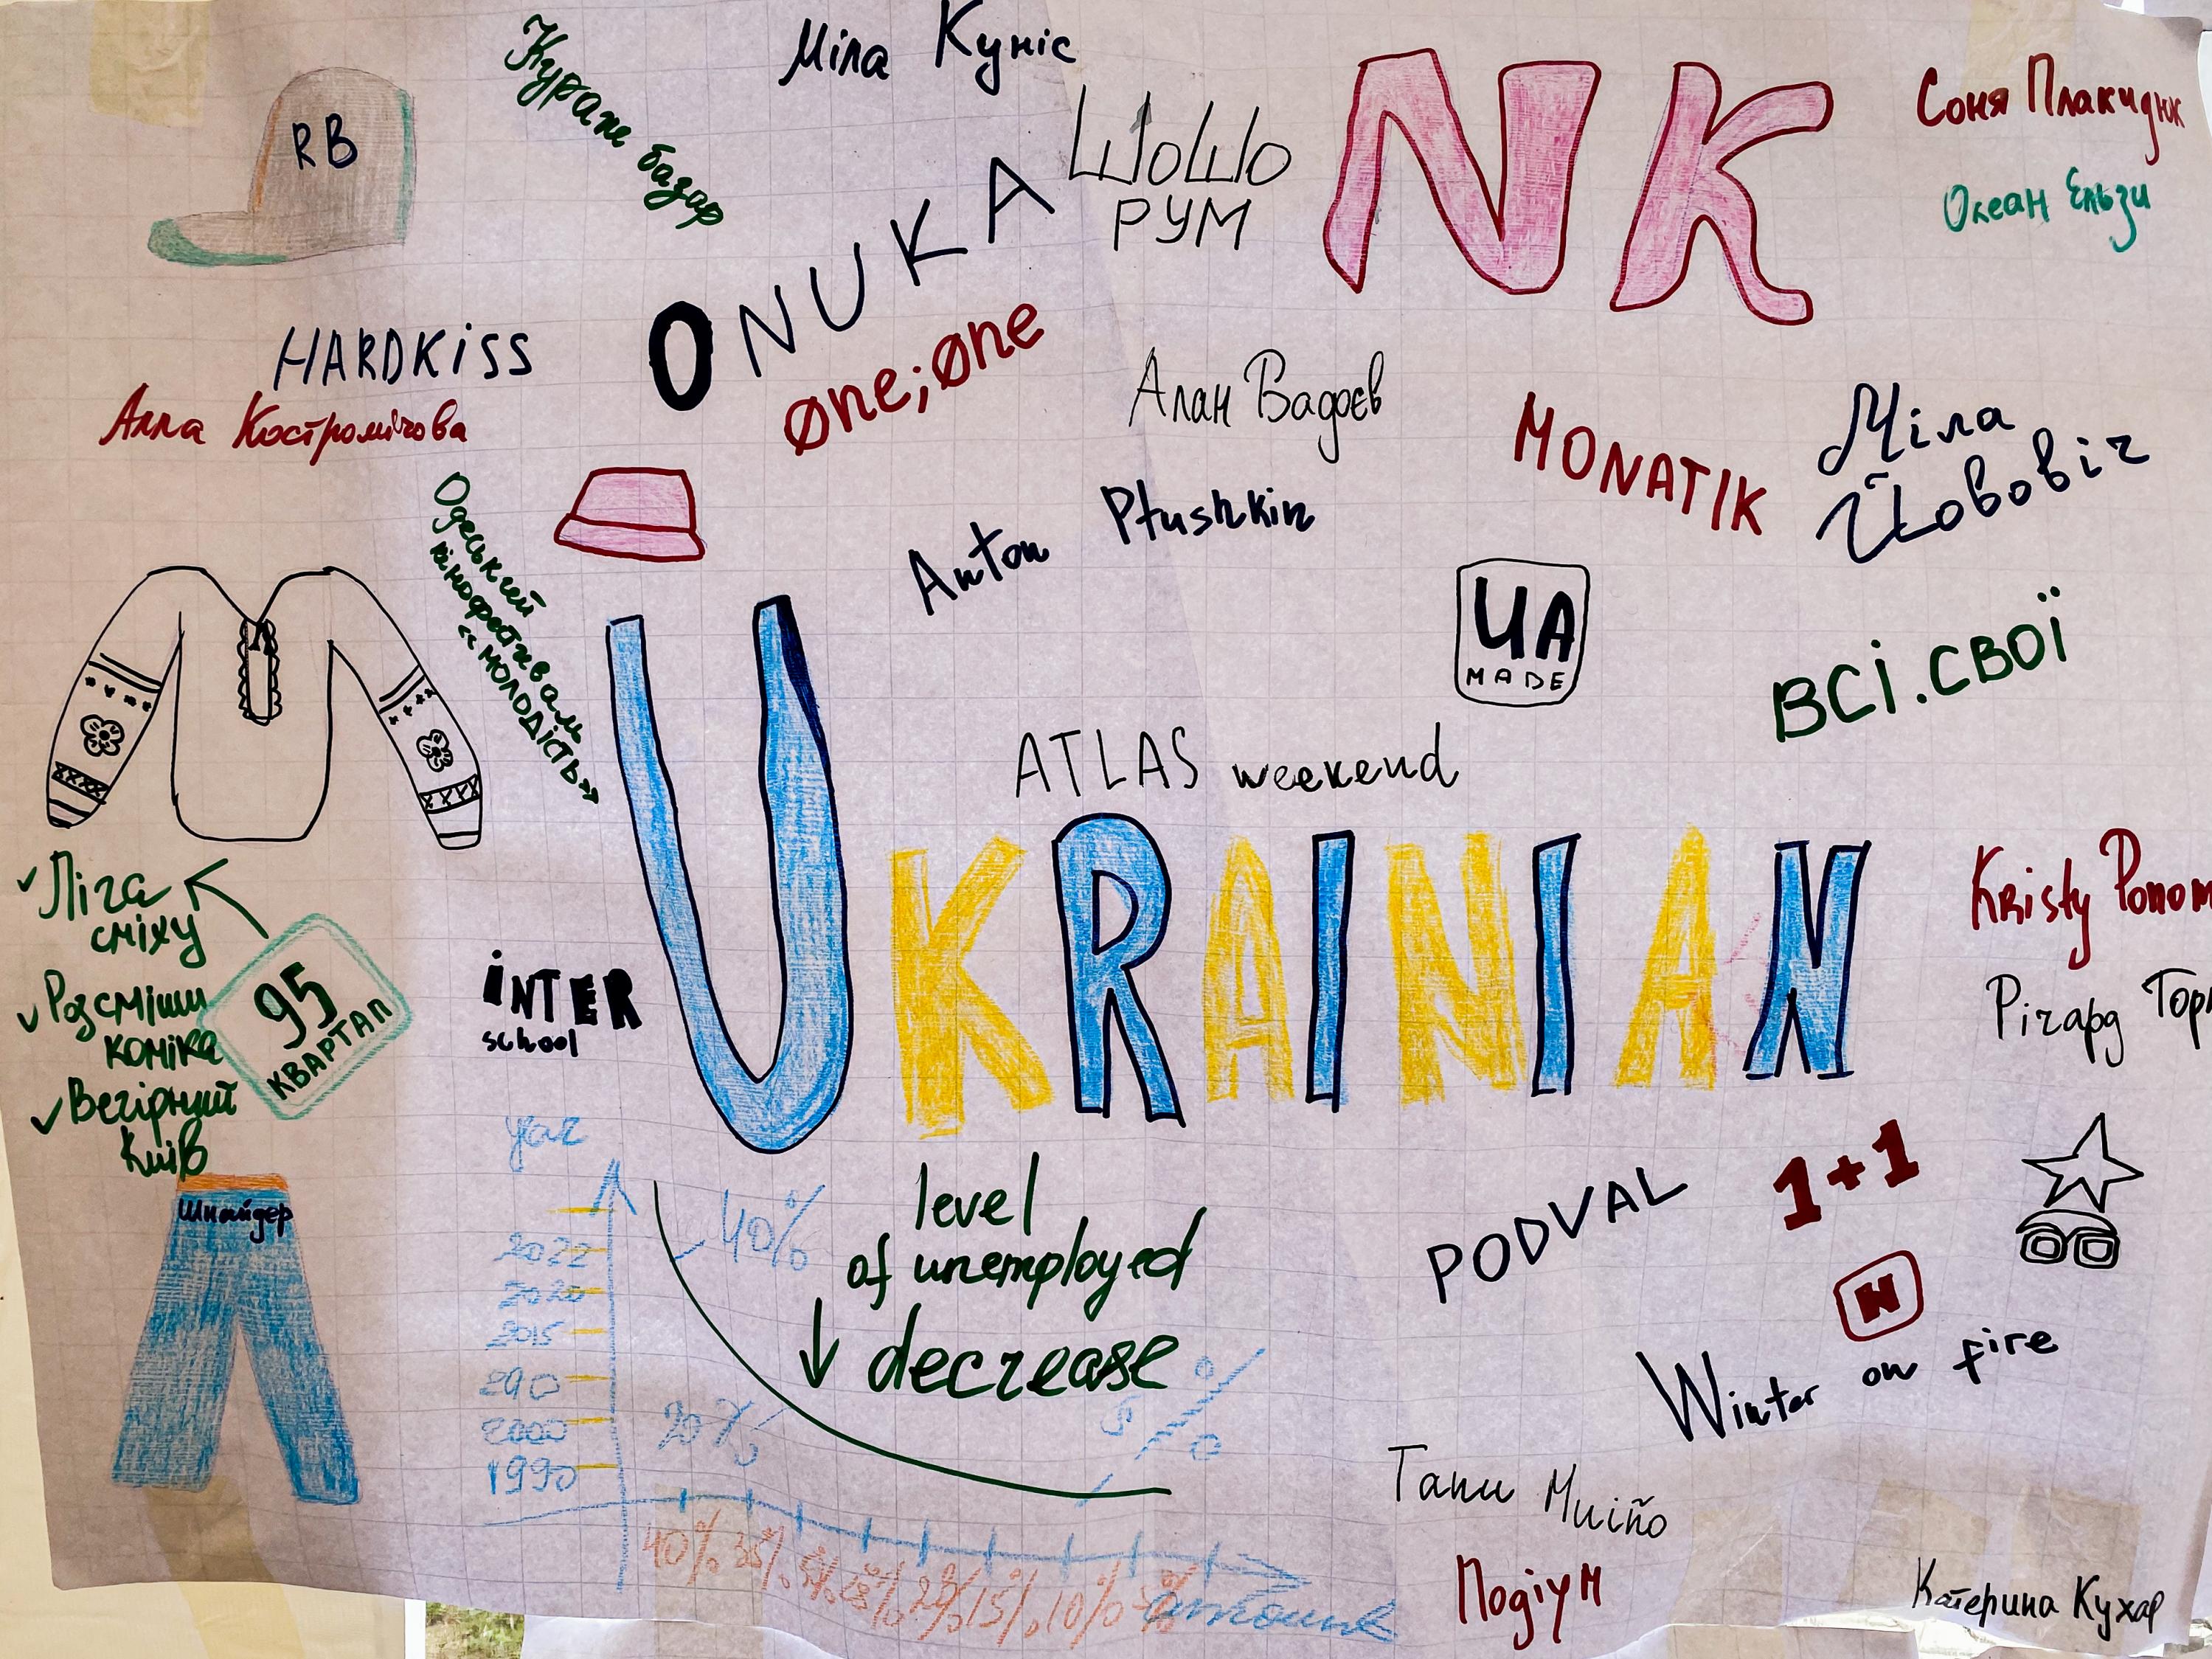 RB
Кураж базар
Міла Куніс
ШОШО
РУМ
NK
Соня Плакидюк
Океан Ельзи
HARDKiSS
Алла Костромічова
ONUKA
øne;øne
Алан Бадоєв
MONATIK
Міла
Йовович
Anton Ptushkin
Одеський
кінофестиваль
«МОЛОДІСТЬ»
UA
MADE
ВСі.СВОЇ
ATLAS weekend
UKRAINIAN
Ліга
сміху
Розсміши
коміка
Вечірній
Київ
95
КВАРТАЛ
iNTER
school
Kristy Ponom
Річард Гор
Шнайдер
year
2022
2020
2015
2010
2000
1990
40%
20%
5%
level
of unemployed
decrease
40% 35% 25% 20% 15% 10% 5%
amount
PODVAL
1+1
N
Winter on fire
Тану Muiño
Подіум
Катерина Кухар